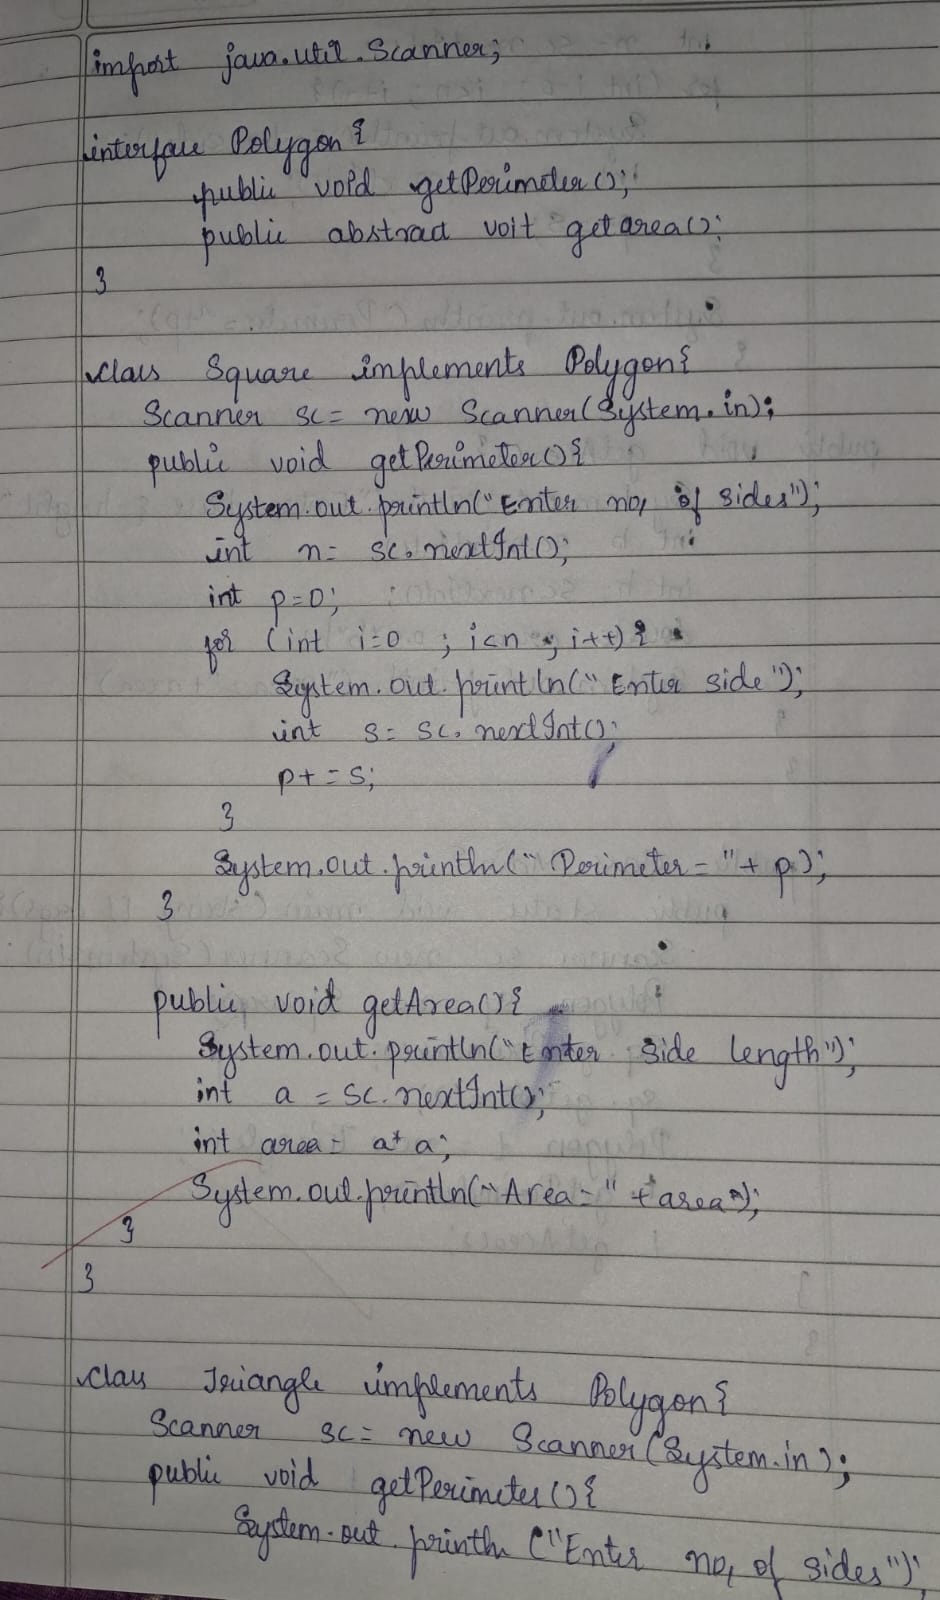 import java.util.Scanner;
interface Polygon {
public void getPerimeter();
public abstract voit getarea();
}
class Square implements Polygon {
Scanner sc = new Scanner(System.in);
public void getPerimeter() {
System.out.println("Enter no, of sides");
int n = sc.nextInt();
int p=0;
for (int i=0 ; i<n ; i++) {
System.out.println("Enter side");
int s = sc.nextInt();
p+=s;
}
System.out.println("Perimeter = "+ p);
}
public void getArea() {
System.out.println("Enter side length");
int a = sc.nextInt();
int area = a* a;
System.out.println("Area = " + area");
}
}
class Triangle implements Polygon {
Scanner sc = new Scanner(System.in);
public void getPerimeter() {
System.out.println("Enter no, of sides");